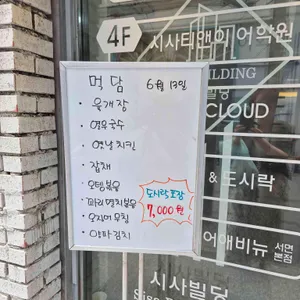 4F 시사티앤이 어학원
BUILDING
빌딩
CLOUD
& 도시락
어애비뉴 서면
본점
시사빌딩
먹담
6월 13일
• 육개장
• 열무국수
• 옛날치킨
• 잡채
• 오뎅볶음
• 꽈리멸치볶음
• 오징어무침
• 양파김치
도시락포장
7,000원